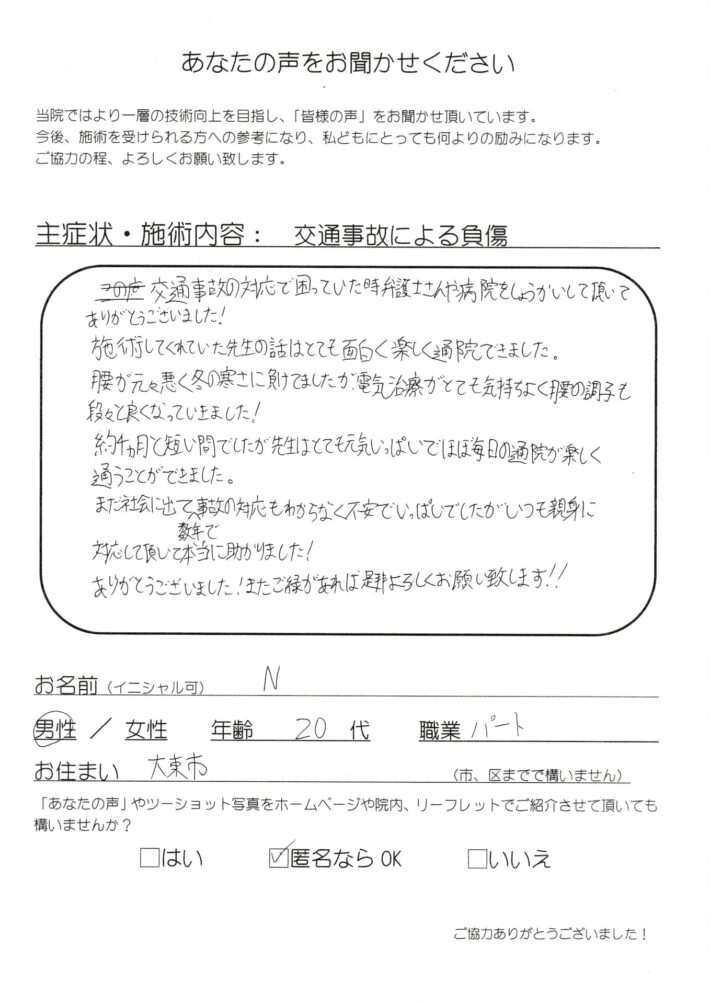 あなたの声をお聞かせください
当院ではより一層の技術向上を目指し、「皆様の声」をお聞かせ頂いています。
今後、施術を受けられる方への参考になり、私どもにとっても何よりの励みになります。
ご協力の程、よろしくお願い致します。
主症状・施術内容： 交通事故による負傷
この度 交通事故の対応で困っていた時弁護士さんや病院をしょうかいして頂いて
ありがとうございました!
施術してくれていた先生の話はとても面白く楽しく通院できました。
腰が元々悪く冬の寒さに負けてましたが電気治療がとても気持ちよく腰の調子も
段々と良くなっていきました!
約4ヵ月と短い間でしたが先生はとても元気いっぱいでほぼ毎日の通院が楽しく
通うことができました。
まだ社会に出て事故の対応もわからなく不安でいっぱいでしたがいつも親身に
数年で
対応して頂いて本当に助かりました!
ありがとうございました!またご縁があれば是非よろしくお願い致します!!
お名前（イニシャル可） N
男性 ／ 女性 年齢 20 代 職業 パート
お住まい 大東市 （市、区までで構いません）
「あなたの声」やツーショット写真をホームページや院内、リーフレットでご紹介させて頂いても
構いませんか？
□はい ☑匿名なら OK □いいえ
ご協力ありがとうございました！